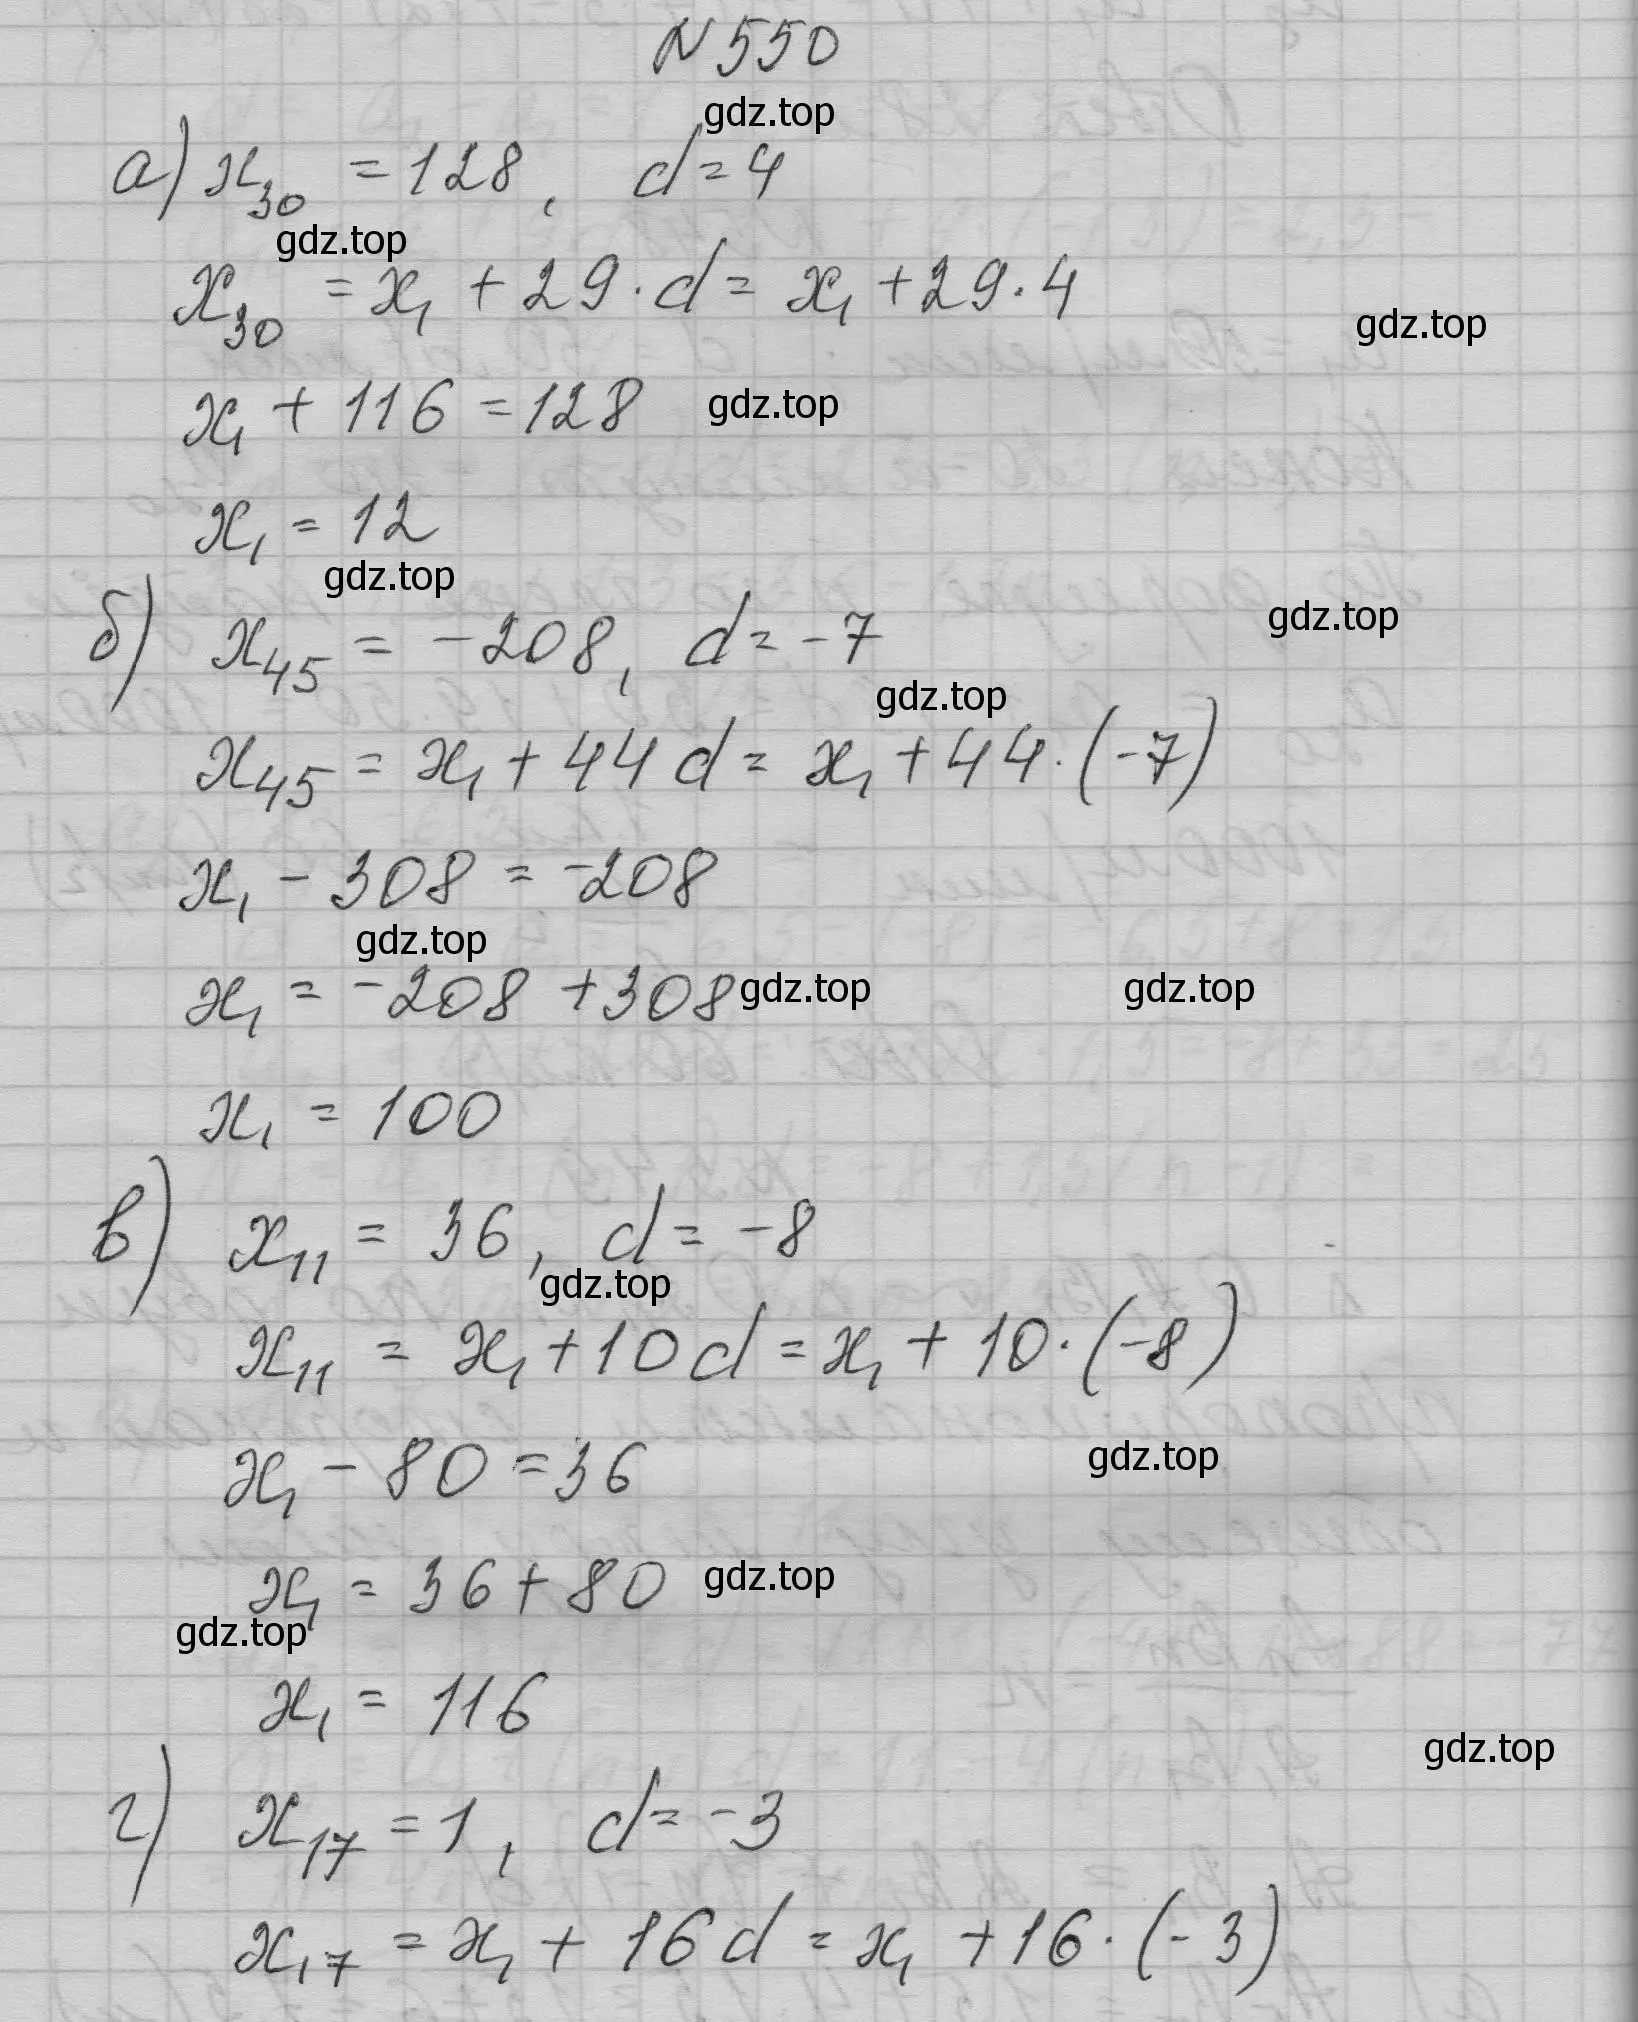 № 550
gdz.top
а) x₃₀ = 128, d = 4
gdz.top
x₃₀ = x₁ + 29 · d = x₁ + 29 · 4
gdz.top
x₁ + 116 = 128 gdz.top
x₁ = 12
gdz.top
б) x₄₅ = -208, d = -7
gdz.top
gdz.top
x₄₅ = x₁ + 44 d = x₁ + 44 · (-7)
x₁ - 308 = -208
gdz.top
x₁ = -208 + 308 gdz.top gdz.top
x₁ = 100
в) x₁₁ = 36, d = -8
gdz.top
x₁₁ = x₁ + 10 d = x₁ + 10 · (-8)
x₁ - 80 = 36 gdz.top
x₁ = 36 + 80 gdz.top
gdz.top
x₁ = 116
gdz.top
г) x₁₇ = 1, d = -3
x₁₇ = x₁ + 16 d = x₁ + 16 · (-3)